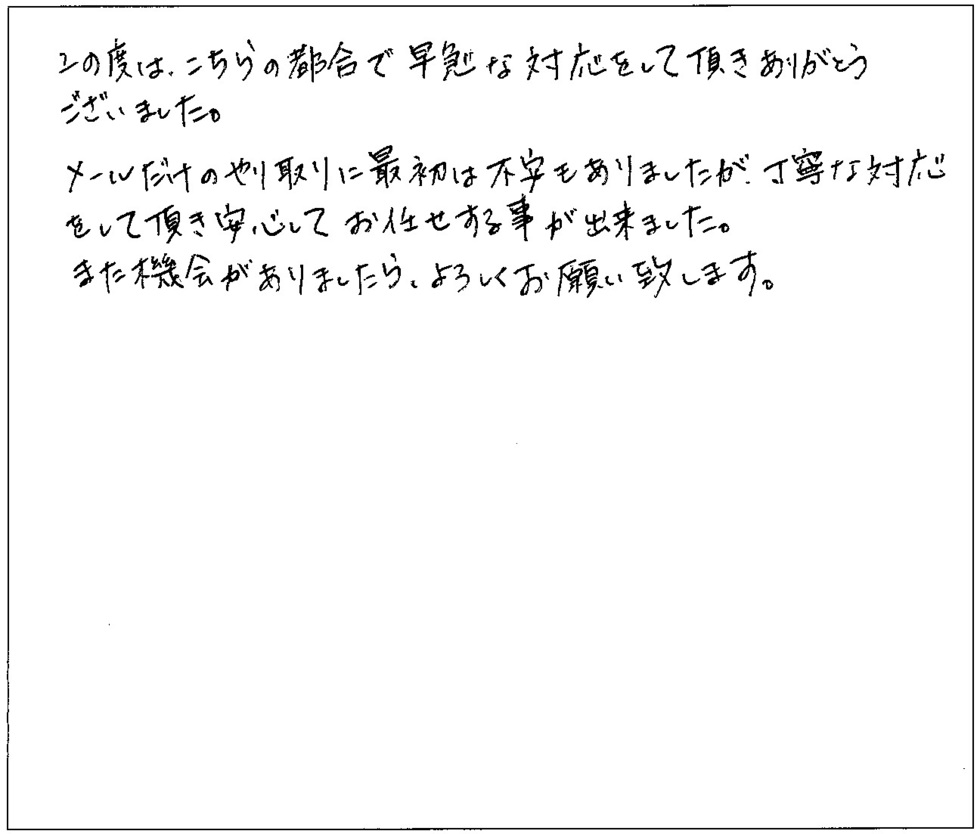 この度は、こちらの都合で早急な対応をして頂きありがとう
ございました。
メールだけのやり取りに最初は不安もありましたが、丁寧な対応
をして頂き安心してお任せする事が出来ました。
また機会がありましたら、よろしくお願い致します。